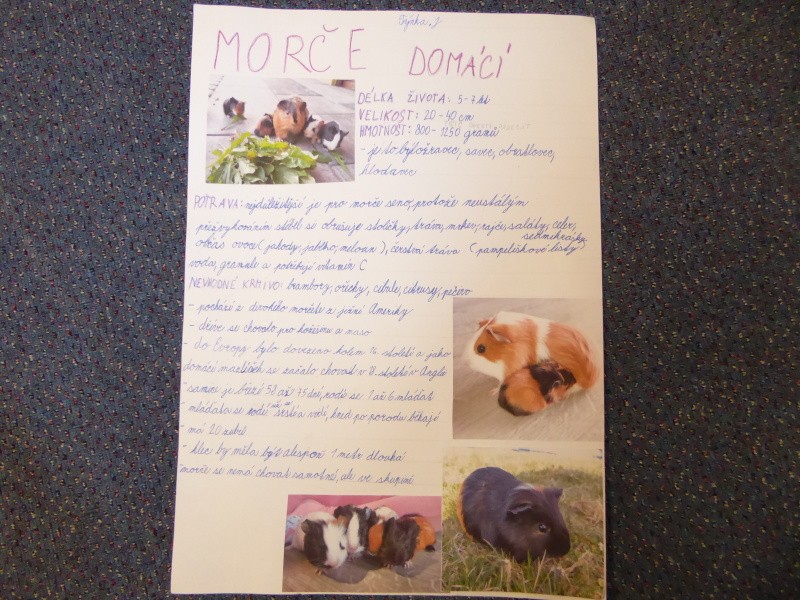 MORČE DOMÁCÍ
DÉLKA ŽIVOTA: 5-7 let
VELIKOST: 20-40 cm
HMOTNOST: 800-1250 gramů
- je to býložravec, savec, obratlovec,
hlodavec
POTRAVA: nejdůležitější je pro morče seno, protože neustálým
přežvykováním stébel se obrušuje stoličky, tráva, mrkev, rajče, saláty, celer,
občas ovoce (jahody, jablko, meloun), čerstvá tráva (pampeliškové listy, sedmikrásky
voda, granule a potřebují vitamín C
NEVHODNÉ KRMIVO: brambory, ořechy, cibule, citrusy, pečivo
- pochází z divokého morčete z jižní Ameriky
- dříve se chovalo pro kožešinu a maso
- do Evropy bylo dovezeno kolem století a jako
domácí mazlíček se začalo chovat v století v Anglii
- samice je březí 58 až 75 dní, rodí se 1 až 6 mláďat
- mláďata se rodí srstí a vidí, hned po porodu běhají
- má 20 zubů
- klec by měla být alespoň 1 metr dlouhá
morče se nemá chovat samotné, ale ve skupině